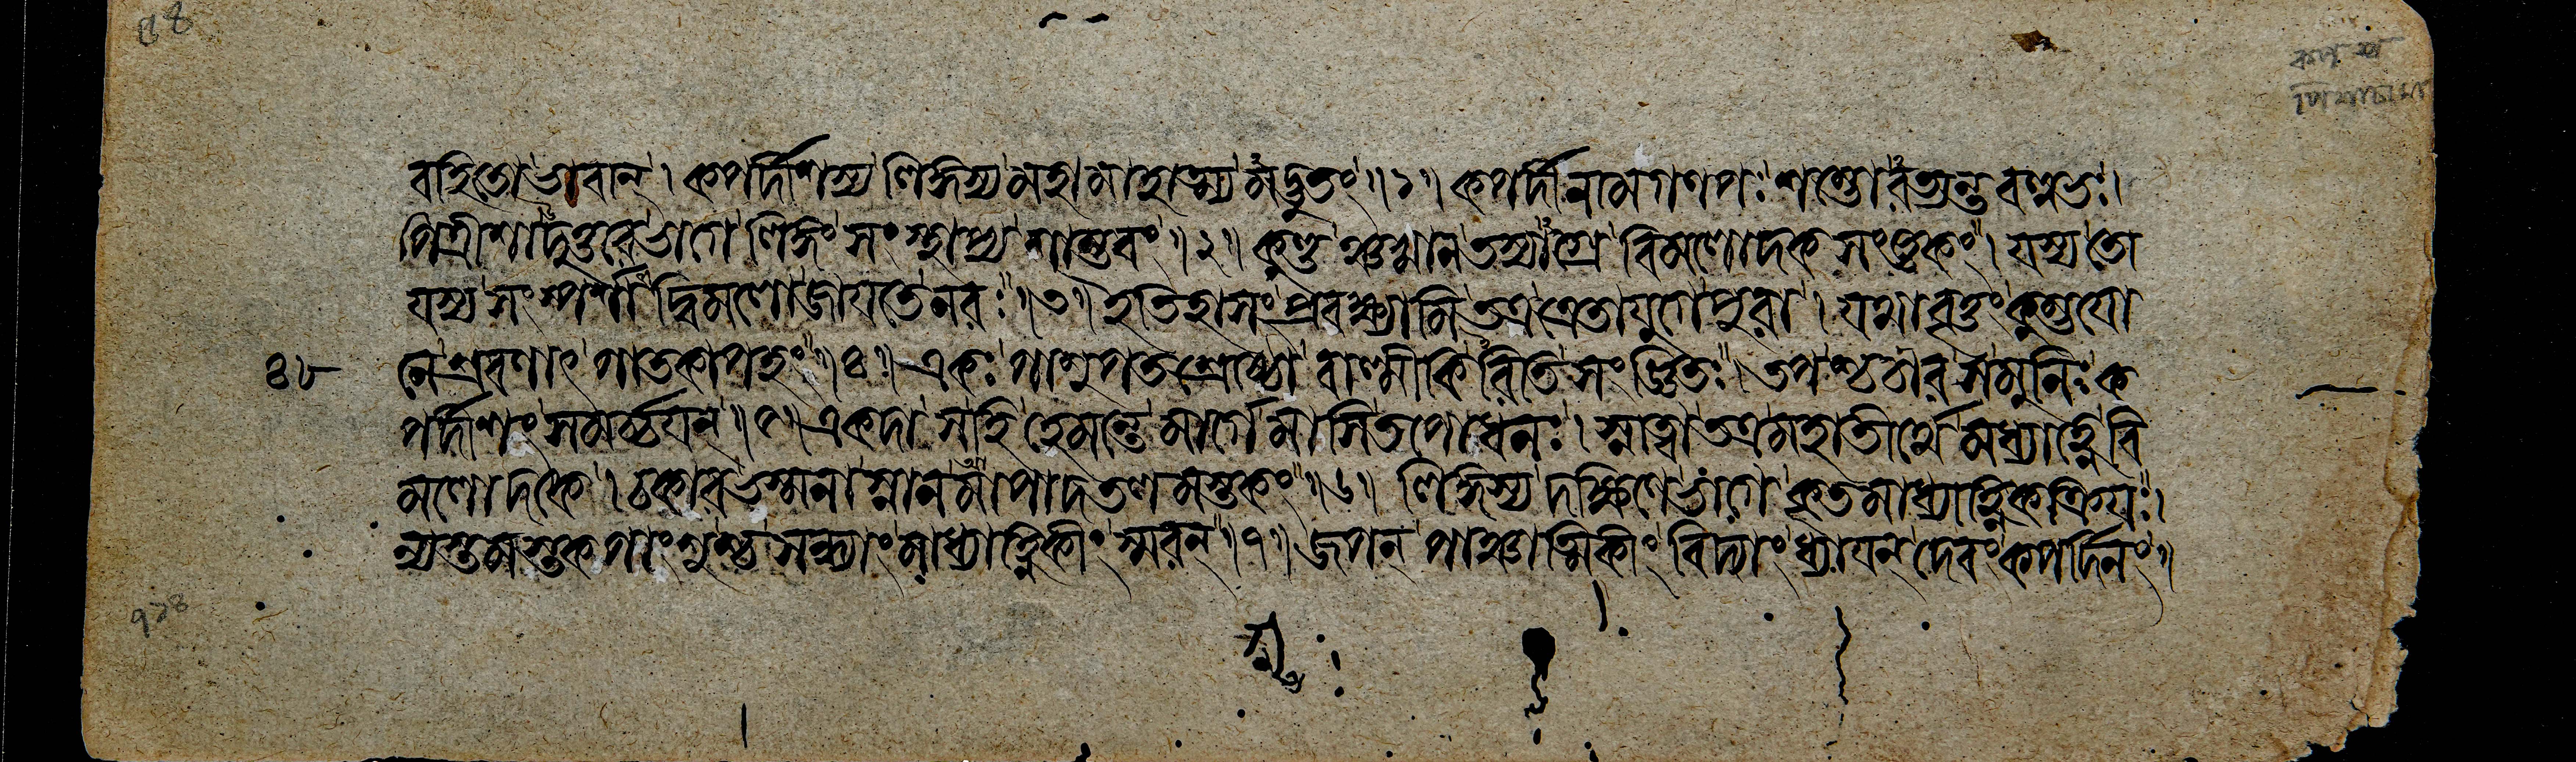 ৪৪
কল্প
পিশাচমো
বহিতো ভবান্ । কপর্দীশস্য লিঙ্গস্য মহামাহাত্ম্যমদ্ভুতং ॥ ১ ॥ কপর্দী নাম গণপঃ শম্ভোরত্যন্তবল্লভঃ ।
পিত্রীশাদুত্তরে ভাগে লিঙ্গং সংস্থাপ্য শাম্ভবং ॥ ২ ॥ কুণ্ডঞ্চখানতস্যাগ্রে বিমলোদক সংজ্ঞকং । যস্য তো
যস্য সংস্পর্শাদ্বিমলো জায়তে নরঃ ॥ ৩ ॥ ইতিহাসং প্রবক্ষ্যামি তত্র ত্রেতাযুগে পুরা । যথাবৃত্তং কুম্ভযো
৪৮ নে শ্রবণাৎ পাতকাপহং ॥ ৪ ॥ একঃ পাশুপতশ্রেষ্ঠো বাল্মীকিরিতি সংজ্ঞিতঃ । তপশ্চচার স মুনিঃ ক
পর্দীশং সমর্চ্চয়ন্ ॥ ৫ ॥ একদা স হি হেমন্তে মার্গে মাসি তপোধনঃ । স্নাত্বা তত্র মহাতীর্থে মধ্যাহ্নে বি
মলোদকে । চকার ভস্মনা স্নানমাপাদতলমস্তকং ॥ ৬ ॥ লিঙ্গস্য দক্ষিণে ভাগে কৃতমাধ্যাহ্নিকক্রিয়ঃ ।
ন্যস্তমস্তকপাংশুশ্চ সন্ধ্যাং মাধ্যাহ্নিকীং স্মরন্ ॥ ৭ ॥ জপন্ পঞ্চাত্মিকীং বিদ্যাং ধ্যায়ন্ দেবং কপর্দিনং ॥